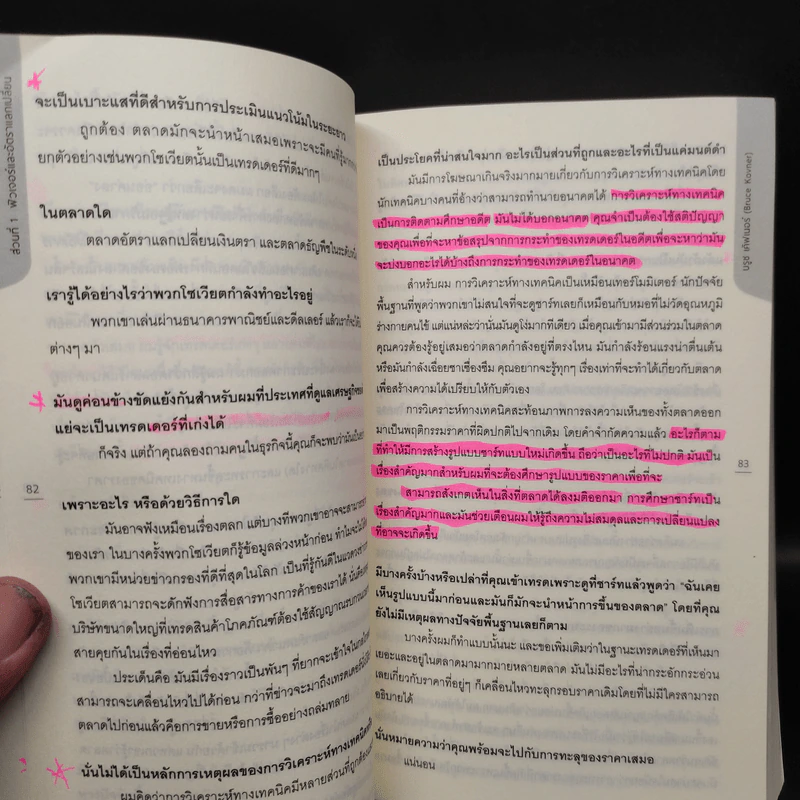 ส่วนที่ 1 ฟิวเจอร์และอัตราแลกเปลี่ยน
จะเป็นเบาะแสที่ดีสำหรับการประเมินแนวโน้มในระยะยาว
ถูกต้อง ตลาดมักจะนำหน้าเสมอเพราะจะมีคนที่รู้มาก
ยกตัวอย่างเช่นพวกโซเวียตนั้นเป็นเทรดเดอร์ที่ดีมากๆ
ในตลาดใด
ตลาดอัตราแลกเปลี่ยนเงินตรา และตลาดธัญพืชในระดับ
เรารู้ได้อย่างไรว่าพวกโซเวียตกำลังทำอะไรอยู่
พวกเขาเล่นผ่านธนาคารพาณิชย์และดีลเลอร์ แล้วเราก็จะได้
ต่างๆ มา
มันดูค่อนข้างขัดแย้งกันสำหรับผมที่ประเทศที่ดูแลเศรษฐกิจ
แย่จะเป็นเทรดเดอร์ที่เก่งได้
ก็จริง แต่ถ้าคุณลองถามคนในธุรกิจนี้คุณก็จะพบว่ามัน
82
เพราะอะไร หรือด้วยวิธีการใด
มันอาจฟังเหมือนเรื่องตลก แต่บางทีพวกเขาอาจจะสามารถ
ของเรา ในบางครั้งพวกโซเวียตก็รู้ข้อมูลล่วงหน้าก่อน ทำไมจะไม่
พวกเขามีหน่วยข่าวกรองที่ดีที่สุดในโลก เป็นที่รู้กันดีในแวดวง
โซเวียตสามารถจะดักฟังการสื่อสารทางการค้าของเราได้ นั่นคือ
บริษัทขนาดใหญ่ที่เทรดสินค้าโภคภัณฑ์ต้องใช้สัญญาณรบกวน
สายคุยกันในเรื่องที่อ่อนไหว
ประเด็นคือ มันมีเรื่องราวเป็นพันๆ ที่ยากจะเข้าใจใน
สามารถจะเคลื่อนไหวไปได้ก่อน กว่าที่ข่าวจะมาถึงเทรดเดอร์
ตลาดไปก่อนแล้วคือการขายหรือการซื้ออย่างถล่มทลาย
นั่นไม่ได้เป็นหลักการเหตุผลของการวิเคราะห์ทางเทคนิค
ผมคิดว่าการวิเคราะห์ทางเทคนิคมีหลายส่วนที่ถูกต้อง
เป็นประโยคที่น่าสนใจมาก อะไรเป็นส่วนที่ถูกและอะไรที่เป็นแค่มนต์ดำ
มันมีการโฆษณาเกินจริงมากมายเกี่ยวกับการวิเคราะห์ทางเทคนิคโดย
นักเทคนิคบางคนที่อ้างว่าสามารถทำนายอนาคตได้ การวิเคราะห์ทางเทคนิค
เป็นการติดตามศึกษาอดีต มันไม่ได้บอกอนาคต คุณจำเป็นต้องใช้สติปัญญา
ของคุณเพื่อที่จะหาข้อสรุปจากการกระทำของเทรดเดอร์ในอดีตเพื่อจะหาว่ามัน
จะบ่งบอกอะไรได้บ้างถึงการกระทำของเทรดเดอร์ในอนาคต
สำหรับผม การวิเคราะห์ทางเทคนิคเป็นเหมือนเทอร์โมมิเตอร์ นักปัจจัย
พื้นฐานที่พูดว่าพวกเขาไม่สนใจที่จะดูชาร์ทเลยก็เหมือนกับหมอที่ไม่วัดอุณหภูมิ
ร่างกายคนไข้ แต่แน่หละว่านั่นมันดูโง่มากทีเดียว เมื่อคุณเข้ามามีส่วนร่วมในตลาด
คุณควรต้องรู้อยู่เสมอว่าตลาดกำลังอยู่ที่ตรงไหน มันกำลังร้อนแรงน่าตื่นเต้น
หรือมันกำลังเฉื่อยชาเชื่องซึม คุณอยากจะรู้ทุกๆ เรื่องเท่าที่จะทำได้เกี่ยวกับตลาด
เพื่อสร้างความได้เปรียบให้กับตัวเอง
การวิเคราะห์ทางเทคนิคสะท้อนภาพการลงความเห็นของทั้งตลาดออก
มาเป็นพฤติกรรมราคาที่ผิดปกติไปจากเดิม โดยคำจำกัดความแล้ว อะไรก็ตาม
ที่ทำให้มีการสร้างรูปแบบชาร์ทแบบใหม่เกิดขึ้น ถือว่าเป็นอะไรที่ไม่ปกติ มันเป็น
เรื่องสำคัญมากสำหรับผมที่จะต้องศึกษารูปแบบของราคาเพื่อที่จะ
สามารถสังเกตเห็นในสิ่งที่ตลาดได้ลงมติออกมา การศึกษาชาร์ทเป็น
เรื่องสำคัญมากและมันช่วยเตือนผมให้รู้ถึงความไม่สมดุลและการเปลี่ยนแปลง
ที่อาจจะเกิดขึ้น
มีบางครั้งบ้างหรือเปล่าที่คุณเข้าเทรดเพราะดูที่ชาร์ทแล้วพูดว่า “ฉันเคย
เห็นรูปแบบนี้มาก่อนและมันก็มักจะนำหน้าการขึ้นของตลาด” โดยที่คุณ
ยังไม่มีเหตุผลทางปัจจัยพื้นฐานเลยก็ตาม
บางครั้งผมก็ทำแบบนั้นนะ และขอเพิ่มเติมว่าในฐานะเทรดเดอร์ที่เห็นมา
เยอะและอยู่ในตลาดมามากมายหลายตลาด มันไม่มีอะไรที่น่ากระอักกระอ่วน
เลยเกี่ยวกับราคาที่อยู่ๆ ก็เคลื่อนไหวทะลุกรอบราคาเดิมโดยที่ไม่มีใครสามารถ
อธิบายได้
นั่นหมายความว่าคุณพร้อมจะไปกับการทะลุของราคาเสมอ
แน่นอน
บรูซ เคิฟเนอร์ (Bruce Kovner)
83